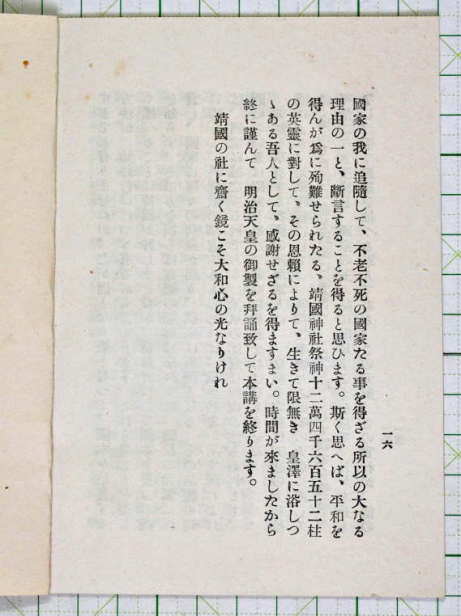 一六
國家の我に追隨して、不老不死の國家たる事を得ざる所以の大なる
理由の一と、斷言することを得ると思ひます。斯く思へば、平和を
得んが爲に殉難せられたる、靖國神社祭神十二萬四千六百五十二柱
の英靈に對して、その恩賴によりて、生きて限無き　皇澤に浴しつ
ゝある吾人として、感謝せざるを得ますまい。時間が來ましたから
終に謹んで　明治天皇の御製を拜誦致して本講を終ります。
靖國の社に齋く鏡こそ大和心の光なりけれ